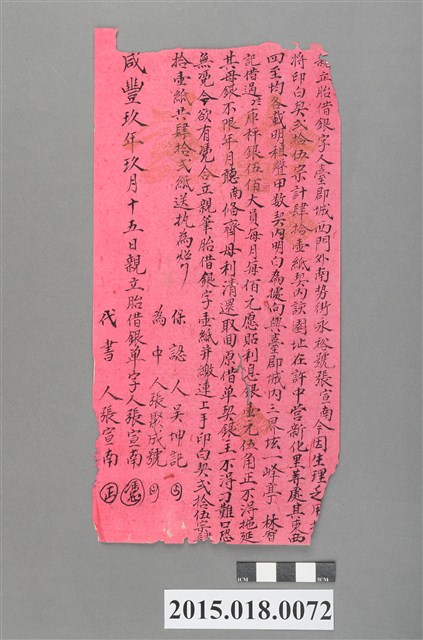 親立胎借銀字人臺郡城西門外南勢街永裕號張宣南今因生理乏用
將印白契弍拾伍宗計肆拾壹紙契內該園址在許中營新化里等處其東西
四至均各載明租聲甲數契內明白為據向與臺郡城內三界坛一峰亭林
記借過六庫秤銀伍佰大員每月每佰元愿貼利息銀壹元伍角正不得拖延
其母銀不限年月聽南條齊母利清還取回原借单契銀主不得刁難口恐
無憑今欲有憑合立親筆胎借銀字壹紙并繳連上手印白契弍拾伍宗
拾壹紙共肆拾弍紙送执為炤
保認人吳坤記
為中人張聚成號
咸豐玖年玖月十五日親立胎借銀单字人張宣南
代書人張宣南
2015.018.0072